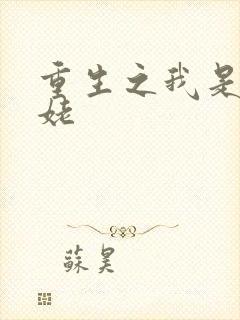 重生之我是
姥
蘇昊